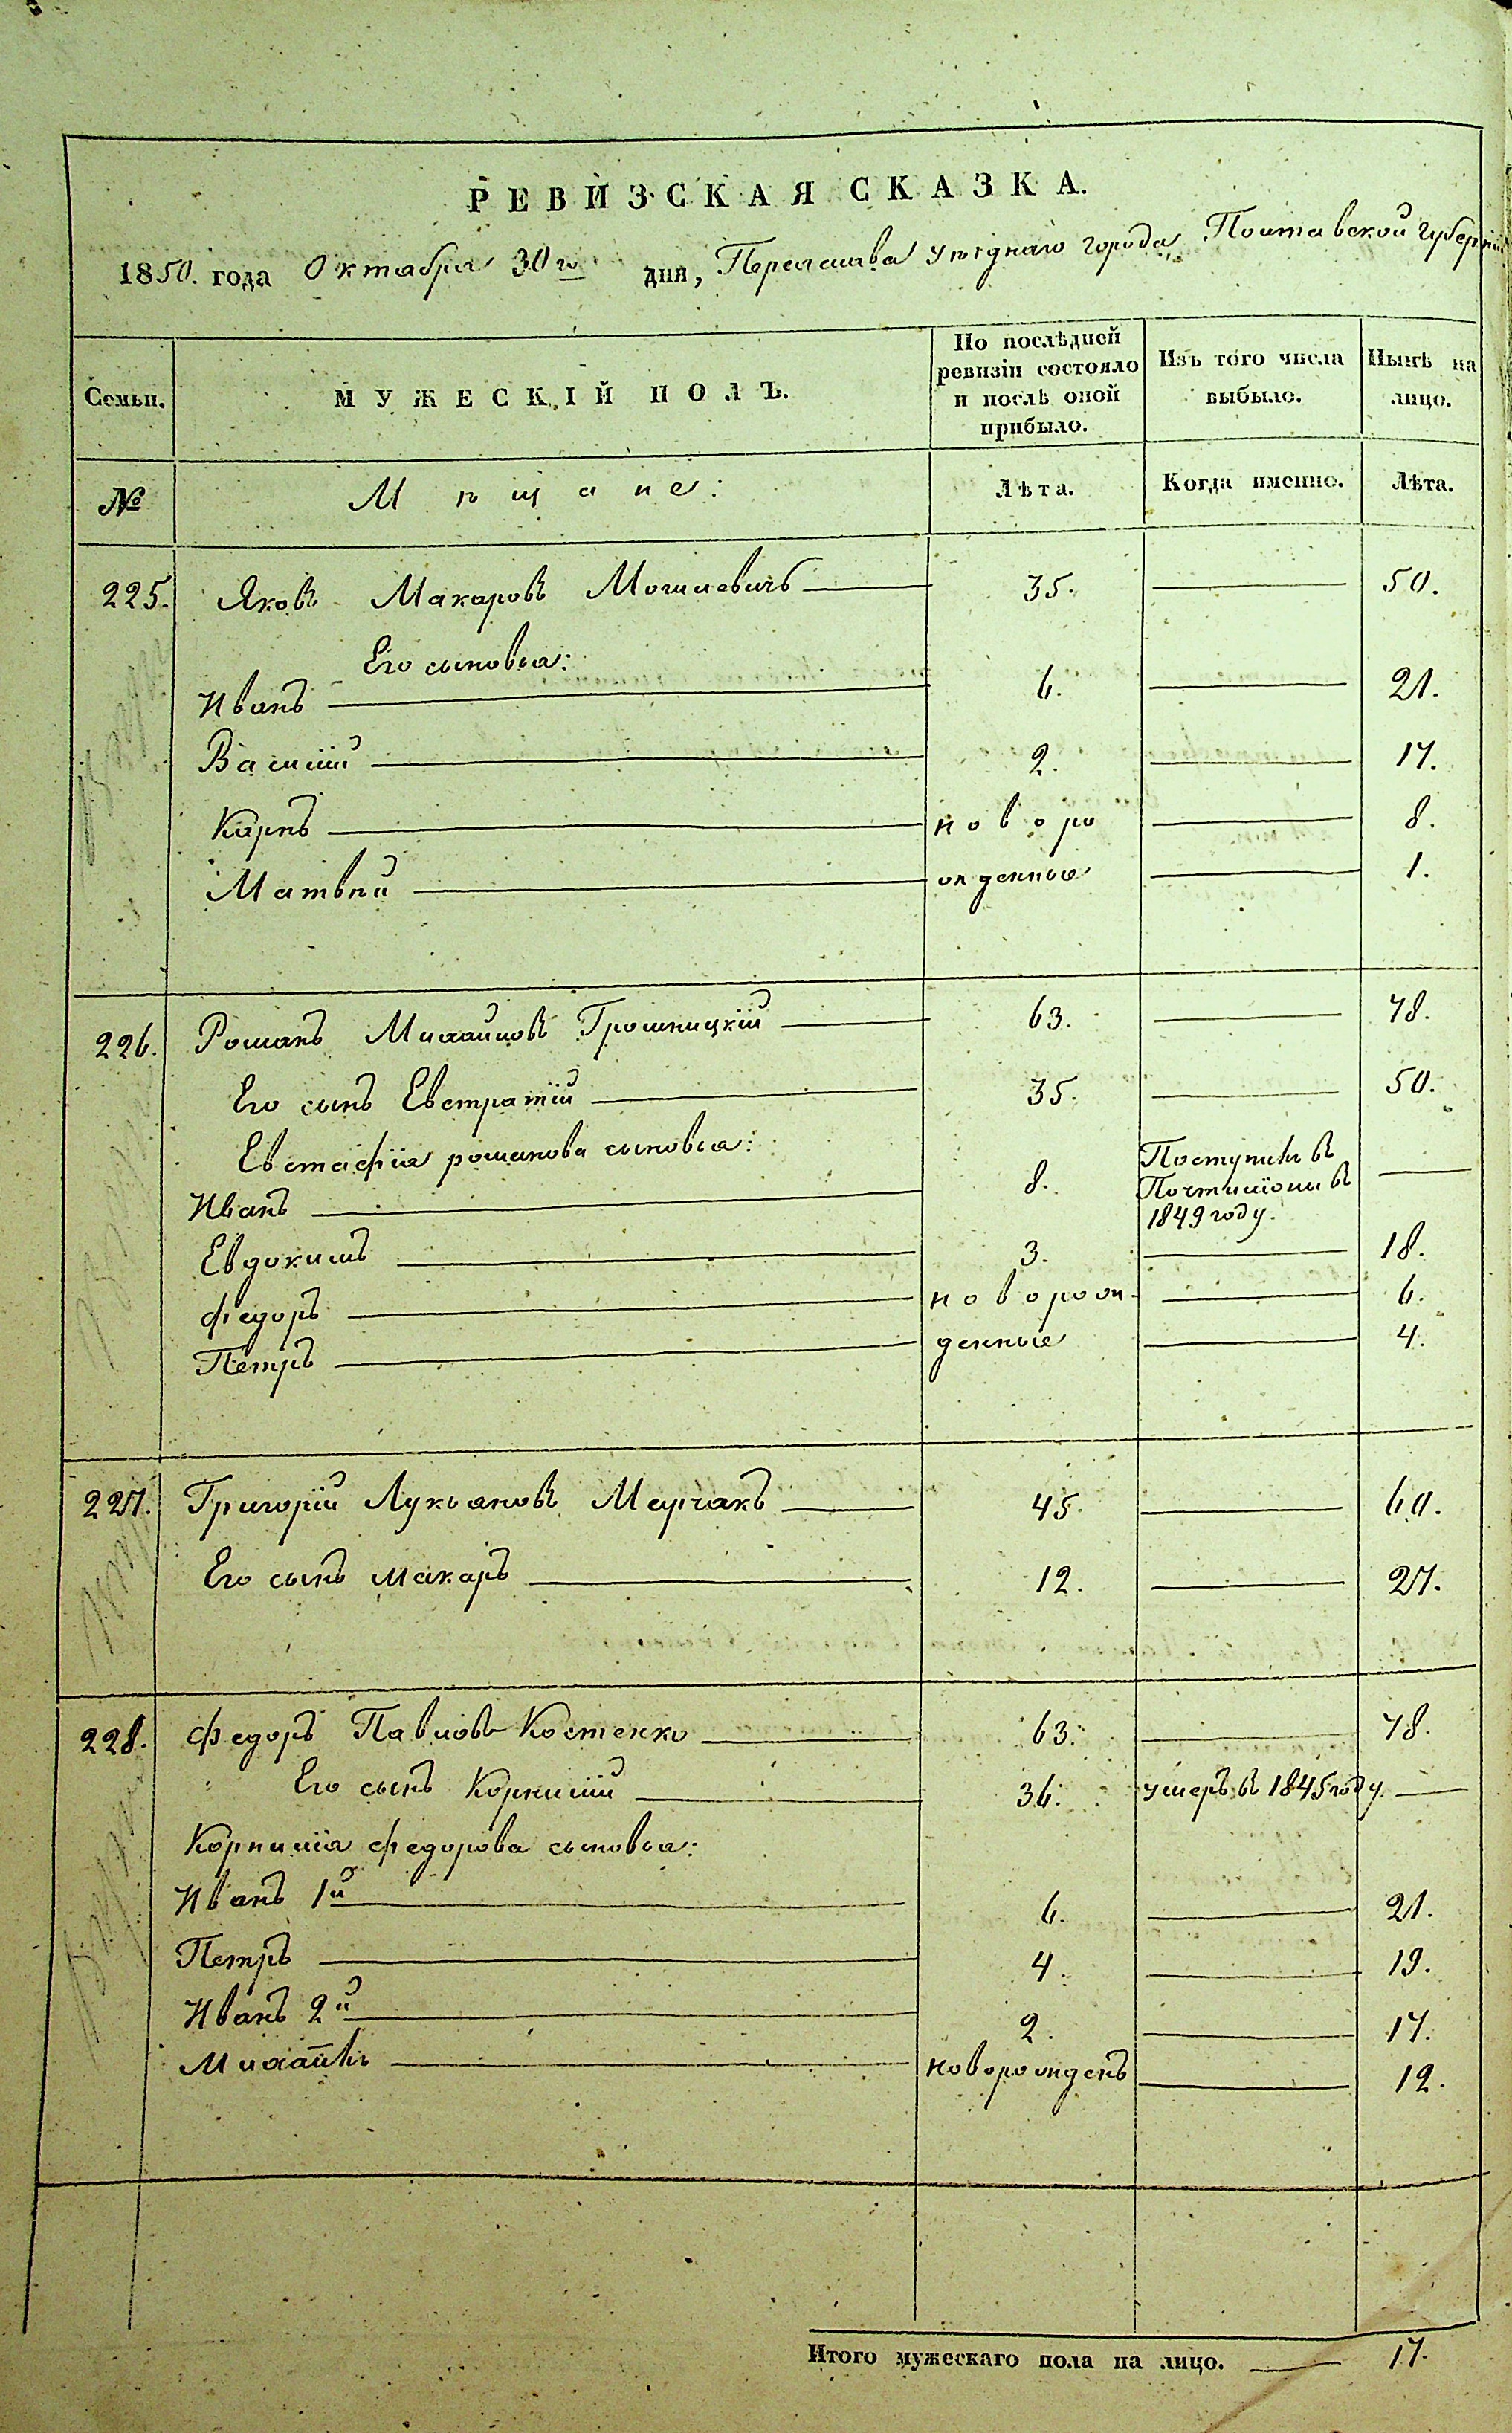 РЕВИЗСКАЯ СКАЗКА.
1850. года Октября 30го дня, Переяслава уѣзднаго города, Полтавской губерніи
Семьи. МУЖЕСКІЙ ПОЛЪ. По послѣдней ревизіи состояло и послѣ оной прибыло. Изъ того числа выбыло. Нынѣ на лицо.
№ Мѣщане: Лѣта. Когда именно. Лѣта.
225. Яковъ Макаровъ Могилевичъ 35. 50.
Его сыновья:
Иванъ 6. 21.
Василій 2. 17.
Карпъ новоро 8.
Матвѣй жденные 1.
226. Романъ Михайловъ Трошницкій 63. 78.
Его сынъ Евстратій 35. 50.
Евстафія романова сыновья:
Иванъ 8. Поступилъ въ Почтиліоны въ 1849 году.
Евдокимъ 3. 18.
Федоръ ново рож- 6.
Петръ денные 4.
227. Григорій Лукьяновъ 45. 60.
Его сынъ Макаръ 12. 27.
228. Федоръ Павловъ Костенко 63. 78.
Его сынъ Корнилій 36. умеръ въ 1845 году.
Корнилія Федорова сыновья:
Иванъ 1й 6. 21.
Петръ 4. 19.
Иванъ 2й 2. 17.
Михайлъ новорожденъ 12.
Итого мужескаго пола на лицо. 17.